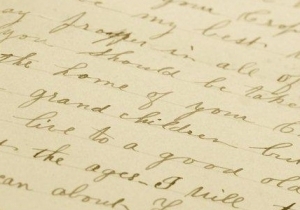 your
be my best
may prosper in all of
you should be take
the home of your
grand children but
live to a good old
the ages - I will t
can about